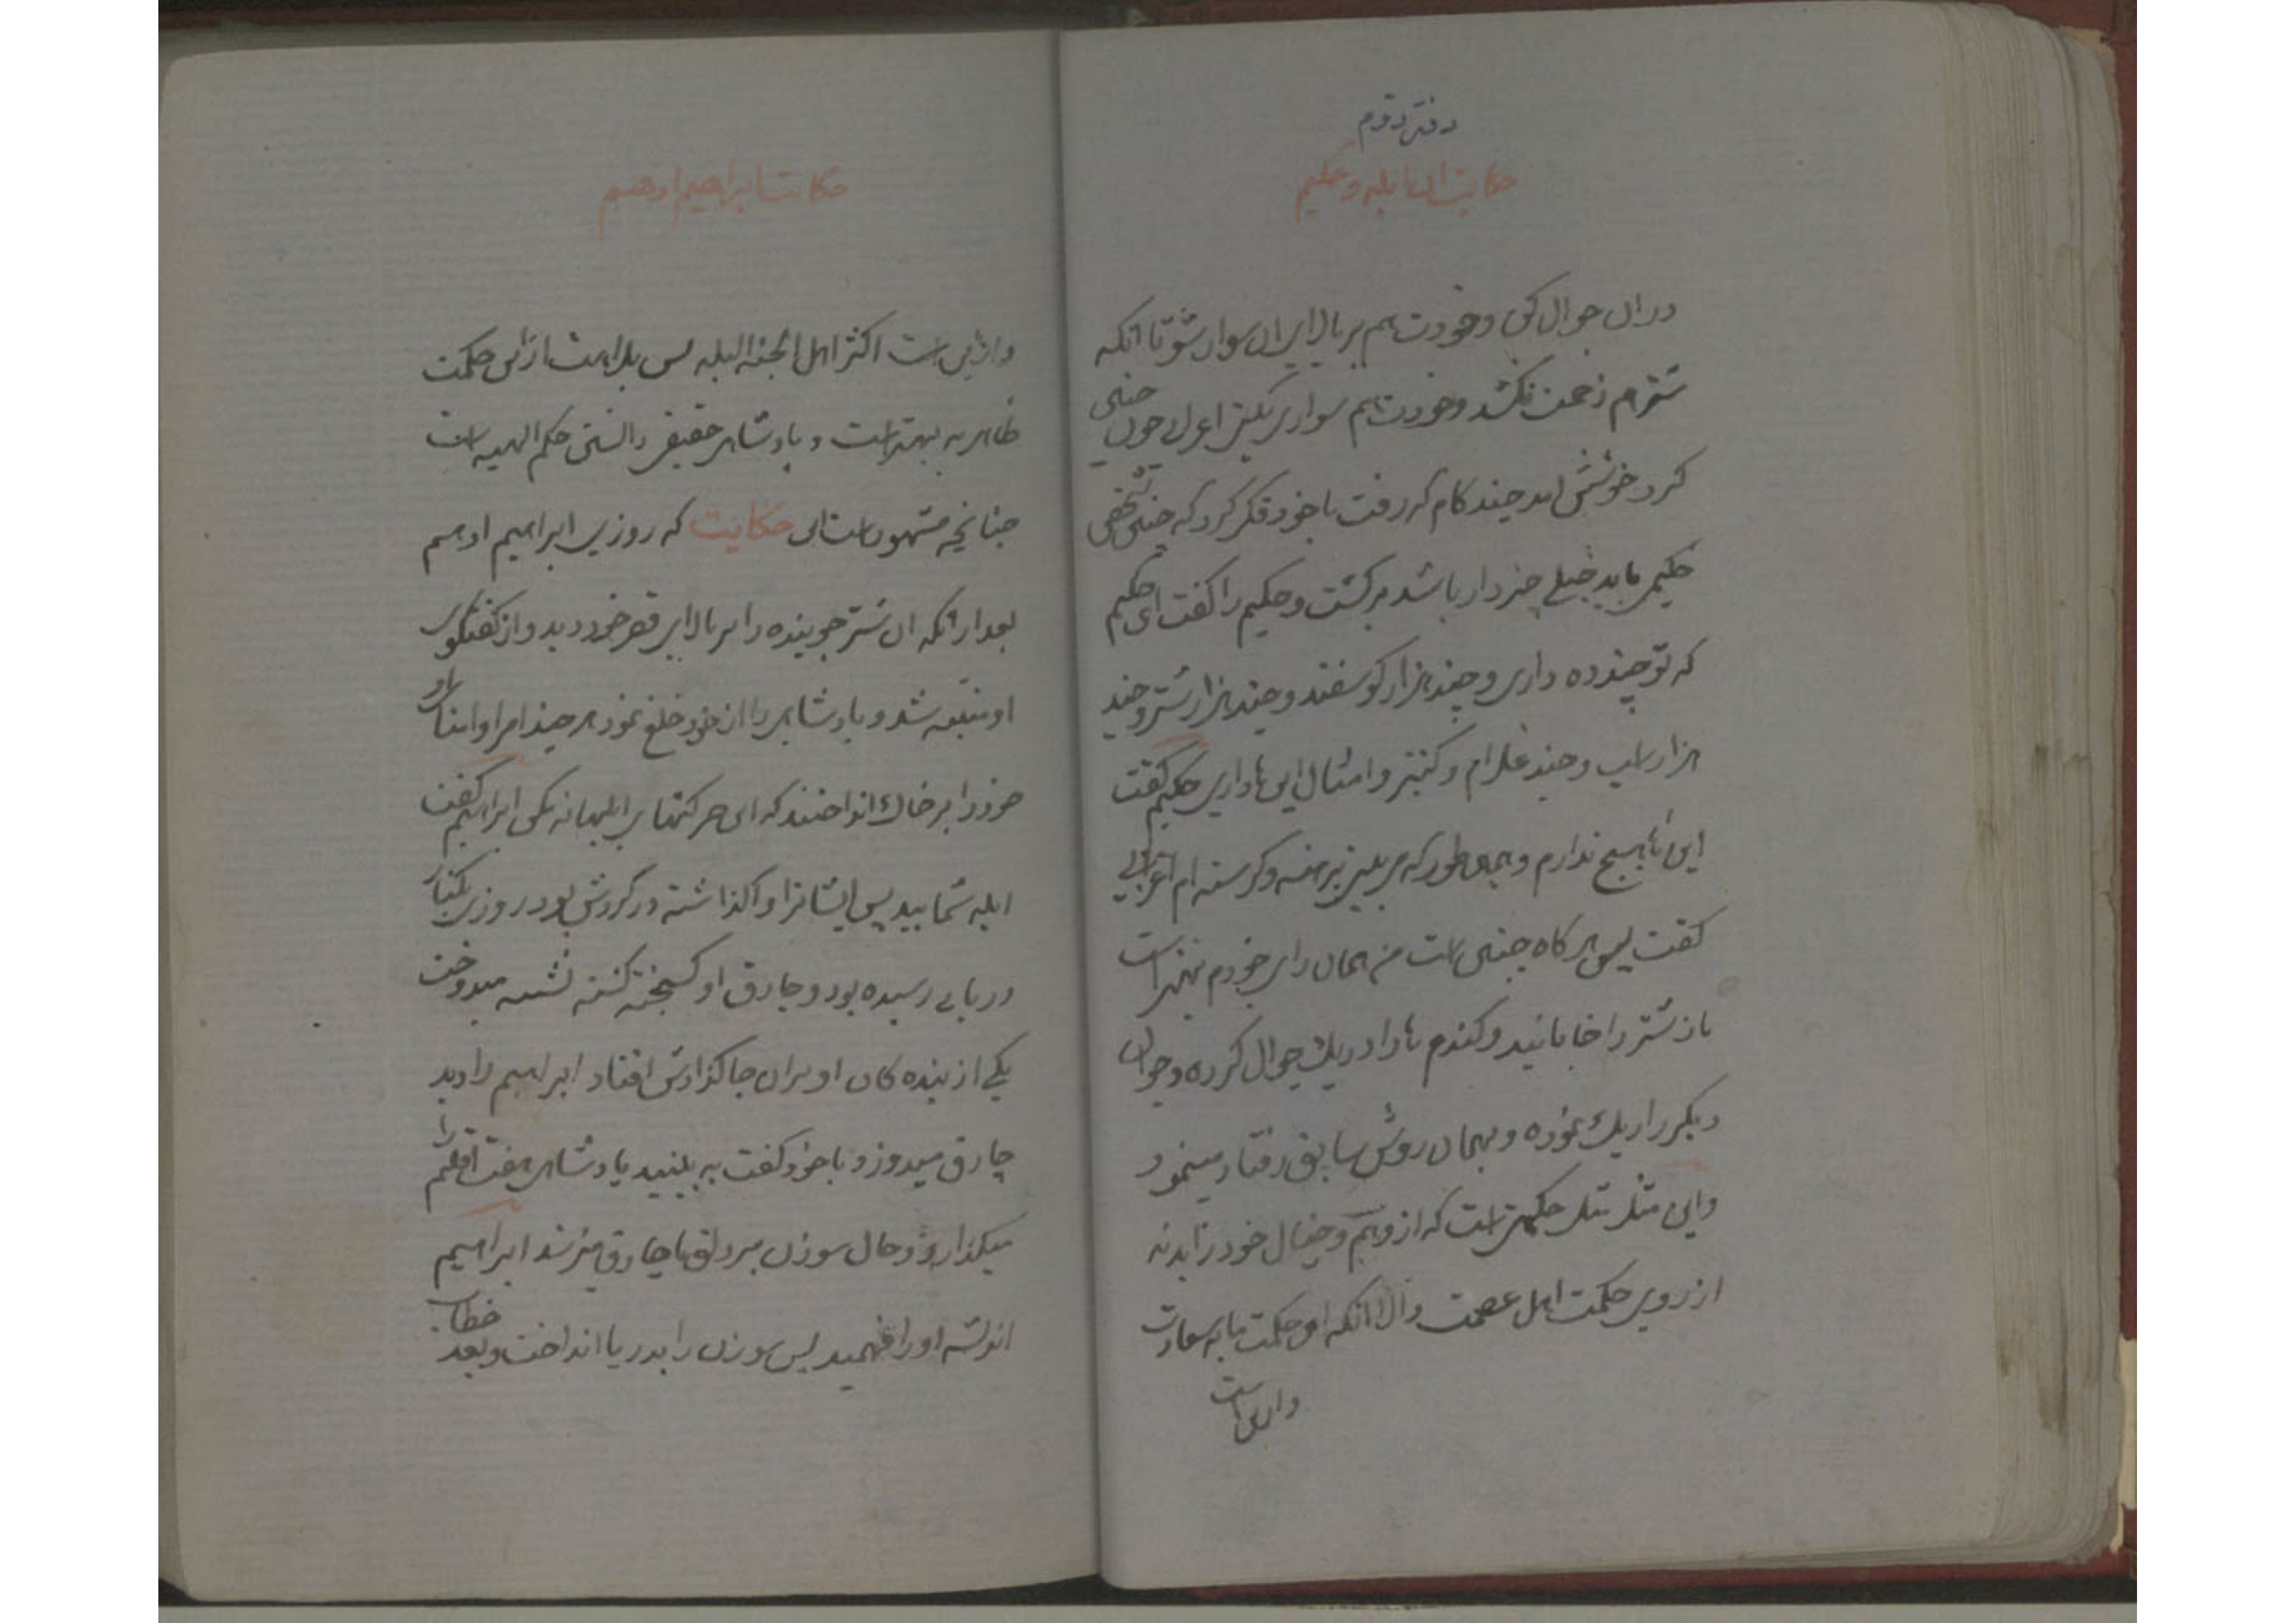 دفتر دوم
حکایت ابله و حکیم
در ان جوال کنی و خودت هم بر بالای ان سوار شو تا انکه
شترم زحمت نکشد و خودت هم سواری بکنی اعرابی چون چنین
کرد خوشش امد چند کام که رفت با خود فکر کرد که چنین شخص
حکیمی باید خیلی چیز دار باشد برکشت و حکیم را کفت ای حکیم
که تو چند ده داری و چند هزار کوسفند و چند هزار شتر و چند
هزار اسب و چند غلام و کنیز و امثال این ها داری حکیم کفت
این ها هیچ ندارم و همان طور که می بینی برهنه و کرسنه ام اعرابی
کفت پس هر کاه چنین است من همان رای خودم بهتر است
باز شتر را خابانید و کندم ها را در یک جوال کرده و جوال
دیکر را ریک نموده و بهمان روش سابق رفتار مینمود
و این مثل مثل حکمتی است که از وهم و خیال خود زاید نه
از روی حکمت اهل عصمت والا انکه ان حکمت مایه سعادت
دارین است
حکایت ابراهیم ادهم
دارین است اکثر اهل الجنه البله پس بلاهت از این حکمت
ظاهریه بهتر است و پادشاهی حقیقی دانستن حکم الهیه است
چنانچه مشهور است این حکایت که روزی ابراهیم ادهم
بعد از انکه ان شتر جوینده را بر بالای قصر خود دید و از کفتکوی
او متنبه شد و پادشاهی را از خود خلع نمود هر چند امرا و ابنای او
خود را بر خاک انداختند که این حرکتهای ابلهانه مکن ابراهیم کفت
ابله شمایید پس ایشانرا واکذاشته در کردش بود روزی بکنار
دریایی رسیده بود و چارق او کسیخته کشته نشسته میدوخت
یکی از بنده کان او بران جا کذارش افتاد ابراهیم را دید
چارق میدوزد با خود کفت به بینید پادشاهی هفت اقلیم را
میکذارد و حال سوزن بر دلق یا چارق میزند ابراهیم
اندیشه او را فهمید پس سوزن را بدریا انداخت و بعد خطاب